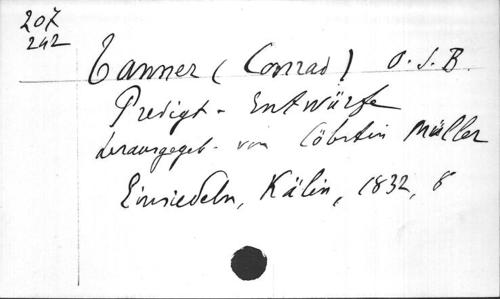 207
242
Tanner (Conrad) O.S.B.
Predigt-Entwürfe
herausgegeb. von Cölestin Müller
Einsiedeln, Kälin, 1832, 8